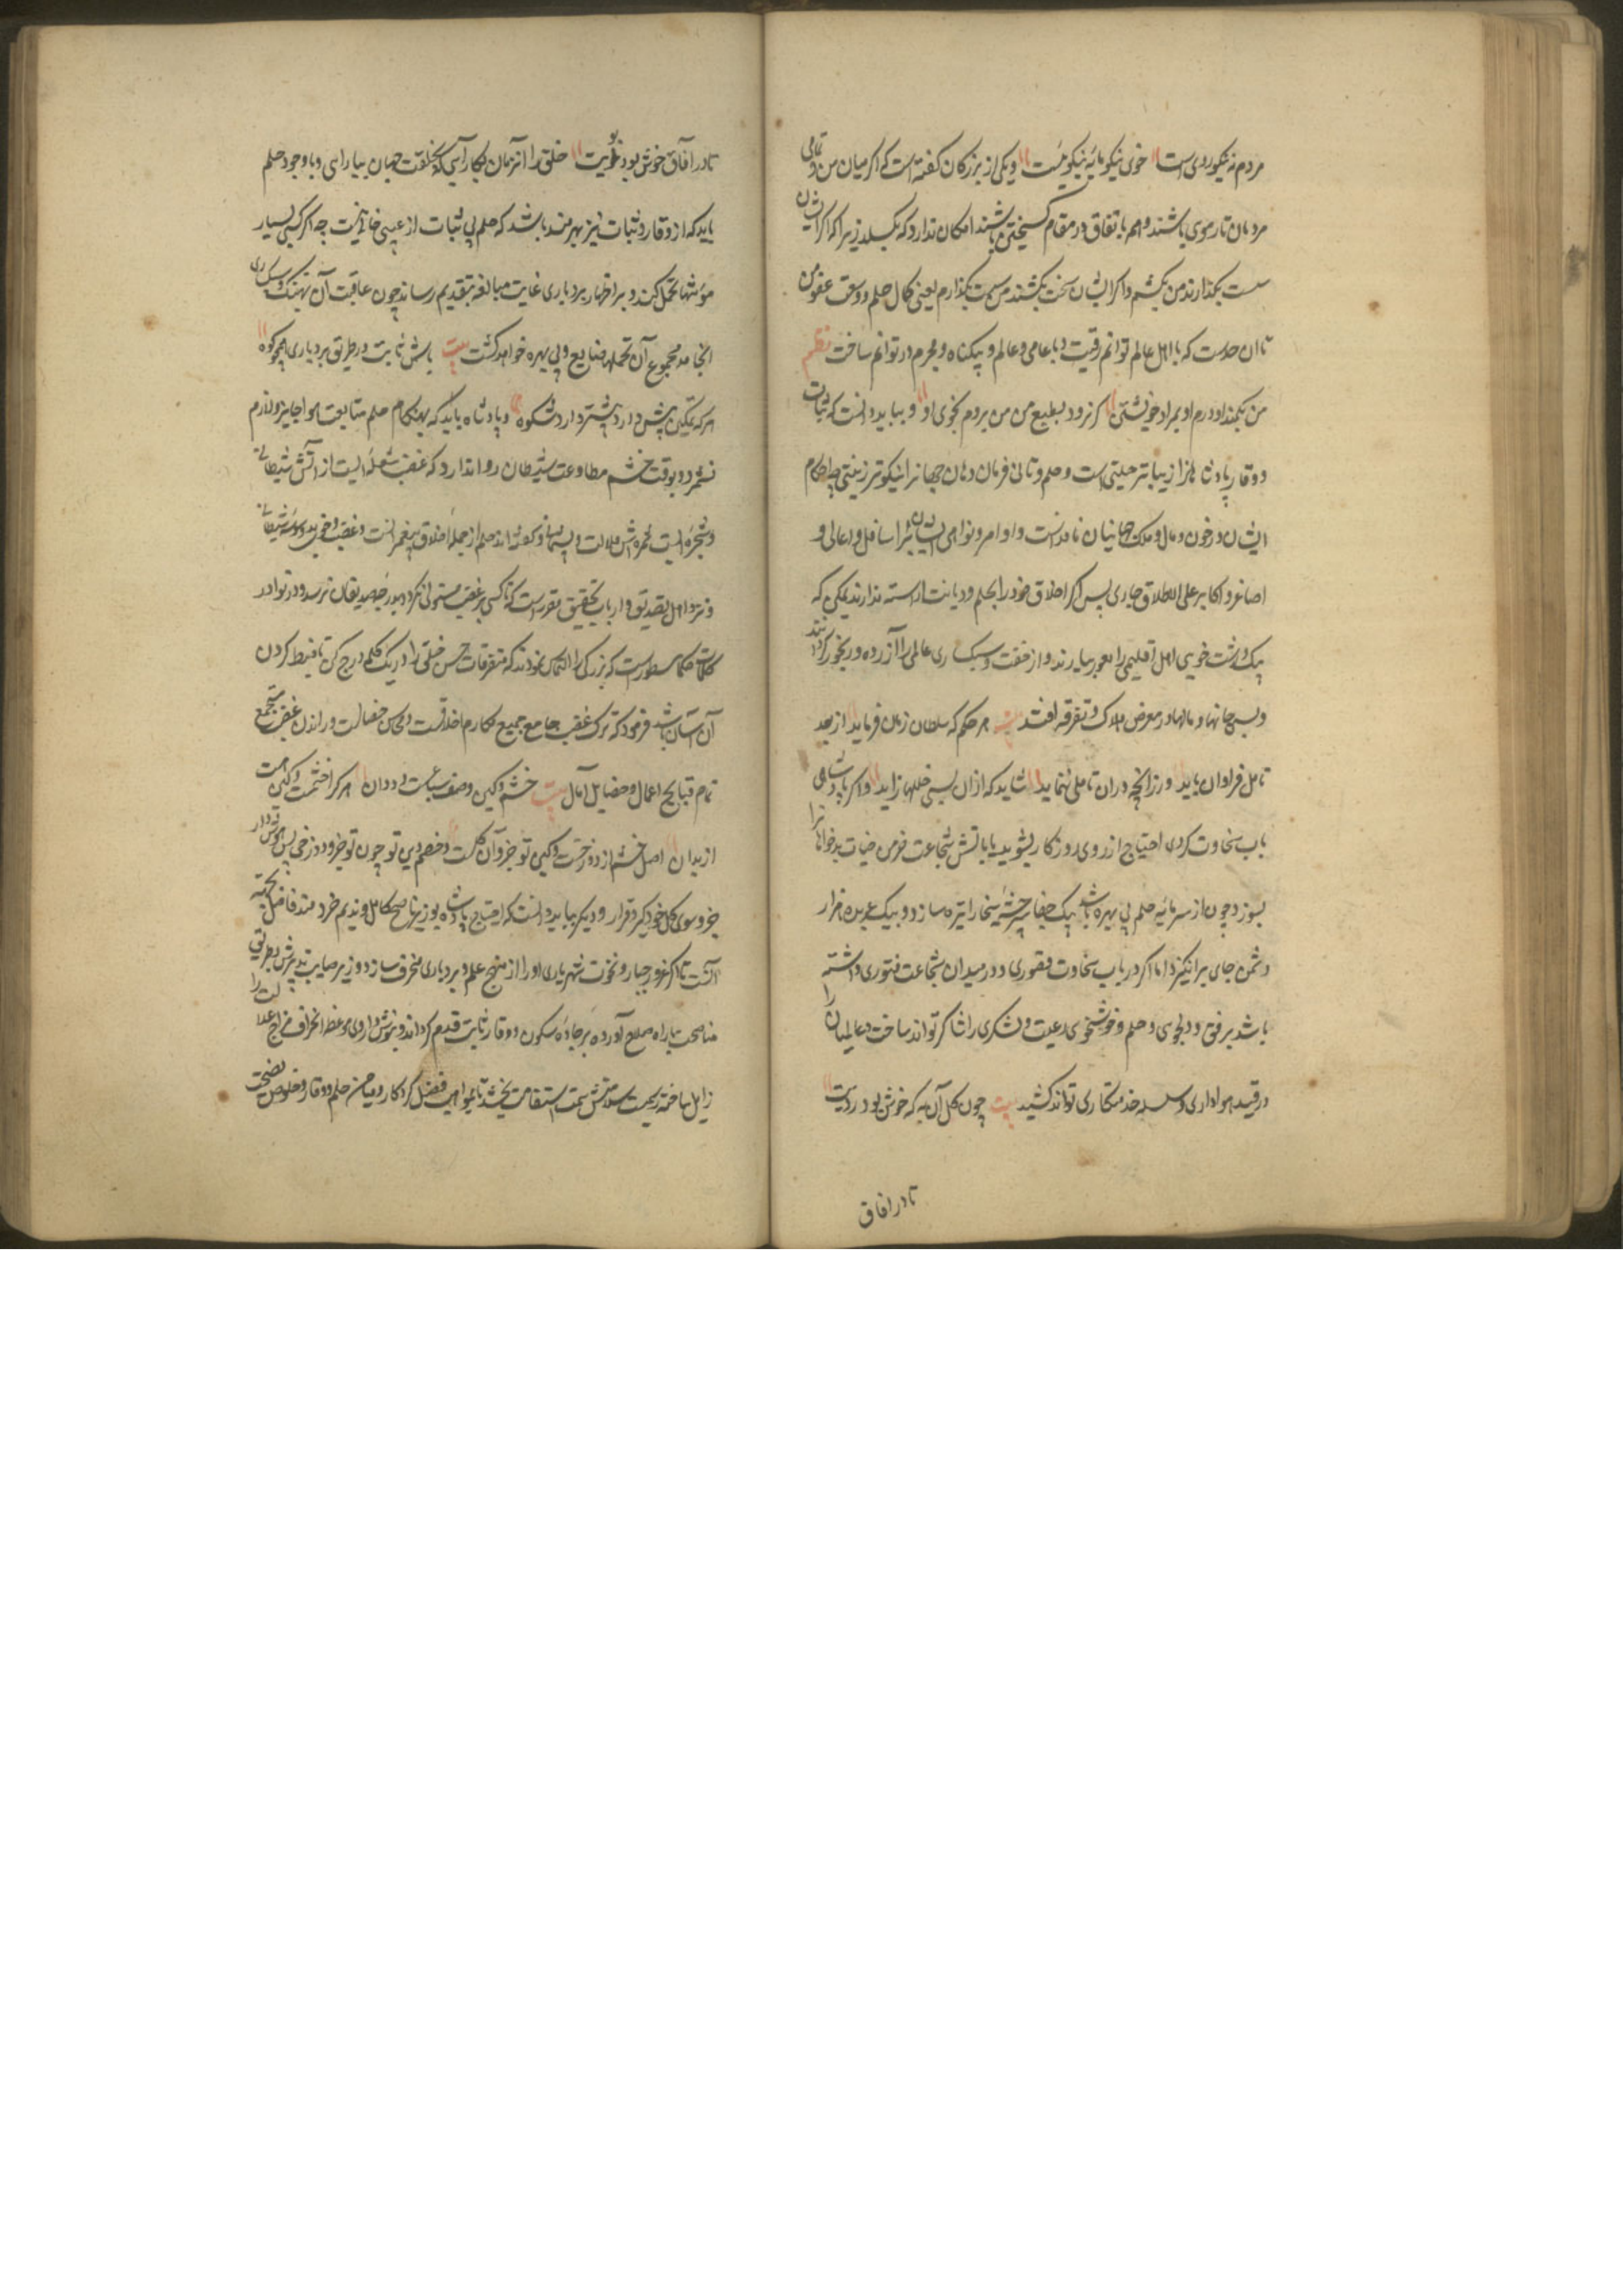 مردم نه نیکورویی است خوی نیکو مایه نیکوئیست و یکی از بزرکان کفته است که اکر میان من و تمامی
مردمان تار موی باشند و همه باتفاق در مقام کسیختن باشند امکان ندارد که بکسلد زیرا که اکر ایشان
سست بکذارند من بکشم و اکر ایشان سخت بکشند من سست بکذارم یعنی کمال حلم و وسعت عفو من
تا آن حدست که با اهل عالم توانم زیست و با عامی و عالم و بیکناه و مجرم در توانم ساخت نظم
من بکمند او درم او بمراد خویشتن کر نرود بطبع من من بروم بخوی او و بباید دانست که ثبات
و وقار پادشاهان را زیباتر حلیتی است و حلم و تأنی فرمان دهان جهانرا نیکوتر زینتی چه احکام
ایشان در خون و مال و ملک جهانیان نافذست و اوامر و نواهی ایشان بر اسافل و اعالی و
اصاغر و اکابر علی الاطلاق جاری پس اکر اخلاق خود را بحلم و دیانت آراسته ندارند یمکن که
بیک درشت خویی اهل اقلیمی را بعور بیارند و از خفت و سبکساری عالمی را آزرده و رنجور کردانند
و بسی جانها و مالها در معرض هلاک و تفرقه افتد بیت هر حکم که سلطان زمان فرماید از بعد
تامل فراوان باید ورزانچه دران تاملی ننماید شاید که ازان بسی خللها زاید و اکر پادشاهی
باب سخاوت کردی احتیاج از روی روزکار بشوید یا باتش شجاعت خرمن حیات بدخواهانرا
بسوزد چون از سرمایه حلم بی بهره باشد بیک جفا سرچشمه سخا را تیره سازد و بیک عربده هزار
دشمن جای برانکیزد اما اکر در باب سخاوت قصوری و در میدان شجاعت فتوری داشته
باشد برفق و دلجوی و حلم و خوشخوی رعیت و لشکری را شاکر تواند ساخت و عالمیان را
در قید هواداری و سلسله خدمتکاری تواند کشید بیت چون کل آن به که خوش بود رویت
تا در افاق
تا در آفاق خوش بود بویت خلق را از زمان بکار آیی که بخلقت جهان بیارایی و با وجود حلم
باید که از وقار و ثبات نیز بهره‌مند باشد که حلم بی ثبات از عیبی خالی نیست چه اکر کسی بسیار
مؤنتها تحمل کند و در اظهار بردباری غایت مبالغه بتقدیم رساند چون عاقبت آن بتهتک و سبکساری
انجامد مجموع آن تحملها ضایع و بی بهره خواهد کشت بیت باش ثابت در طریق بردباری همچو کوه
هرکه تمکین بیش دارد بیشتر دارد شکوه و پادشاه باید که بهنکام حلم متابعت هوا جایز و لازم
نشمرد و بوقت خشم مطاوعت شیطان روا ندارد که غضب شعله ایست از آتش شیطانی
و شجره ایست ثمره اش ملالت و پشیمانی و کفته اند حلم از جمله اخلاق پیغمبرانست و غضب وسوسه شیطانی
و نزد اهل تصدیق و ارباب تحقیق مقررست که تا کسی بر غضب مستولی نکردد بدرجه صدیقان نرسد و در نوادر
کلمات حکما مسطورست که بزرکی را التماس نمودند که متفرقات حسن خلق را در یک کلمه درج کن تا ضبط کردن
آن آسان باشد فرمود که ترک غضب جامع جمیع مکارم اخلاقست و محاسن خصالست و راندن غضب مستجمع
تمام قبایح اعمال و فضایل آمال بیت خشم و کین وصف سباعست و ددان هرکرا خشمست و کین هست
از بدان اصل خشم از دوزخست و کین تو جزو آن کلست و خصم دین تو چون تو جزو دوزخی پس هوش دار
جزو سوی کل خود کیرد قرار و دیکر بباید دانست که احتیاج پادشاه بوزیر ناصح کامل و ندیم خردمند فاضل بجهة
آنست تا اکر غرور جباری و نخوت شهریاری او را از منهج حلم و بردباری منحرف سازد وزیر صایب تدبیرش بطریق
مناصحت باز راه صلاح آورده بر جاده سکون و وقار ثابت قدم کرداند و بنوش داروی موعظه انحراف مزاج عدالت را
زایل ساخته بصحت سلامتش سمت استقامت بخشد تا بمواهب فضل کردکار و میامن حلم و وقار و خلوص نصیحت